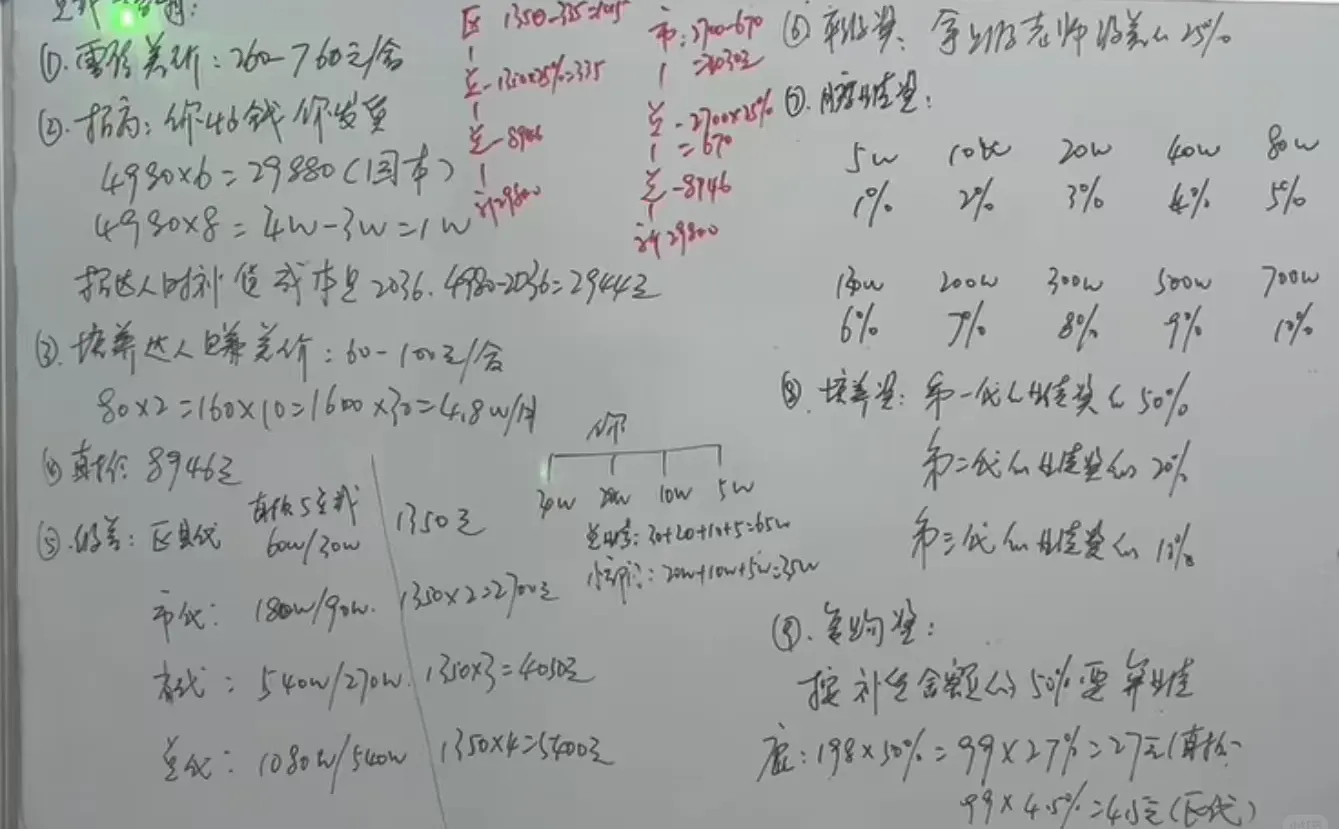 ①.零售差价:260-760元/盒
②.招商:你收钱你发货
4980×6=29880(回本)
4980×8=4w-3w=1w
招达人时补货成本是2036.4980-2036=2944元
③.培养达人日赚差价:60-100元/盒
80×2=160×10=1600×30=4.8w/月
④直推: 8946元
⑤.级差:区县代
60w/30w
1350元
市代: 180w/90w. 1350×2=2700元
省代: 540w/270w. 1350×3=4050元
总代: 1080w/540w 1350×4=5400元
区 1350-335=1015
总-1350×25%=335
总-8946
29800
市:2700-670
=2030元
总-2700×25%
=670
总-8946
29800
你
30w 20w 10w 5w
总业绩:30+20+10+5=65w
小部门:20w+10w+5w=35w
⑥ 老师级差的25%
⑦.月度业绩奖:
5w 10w 20w 40w 80w
1% 2% 3% 4% 5%
130w 200w 300w 500w 700w
6% 7% 8% 9% 10%
⑧.培养奖: 第一代的业绩奖的50%
第二代的业绩奖的20%
第三代的业绩奖的10%
⑨.复购奖:
按补货金额的50%要算业绩
应:198×50%=99×27%=27元(直推
99×4.5%=4.5元(区代)